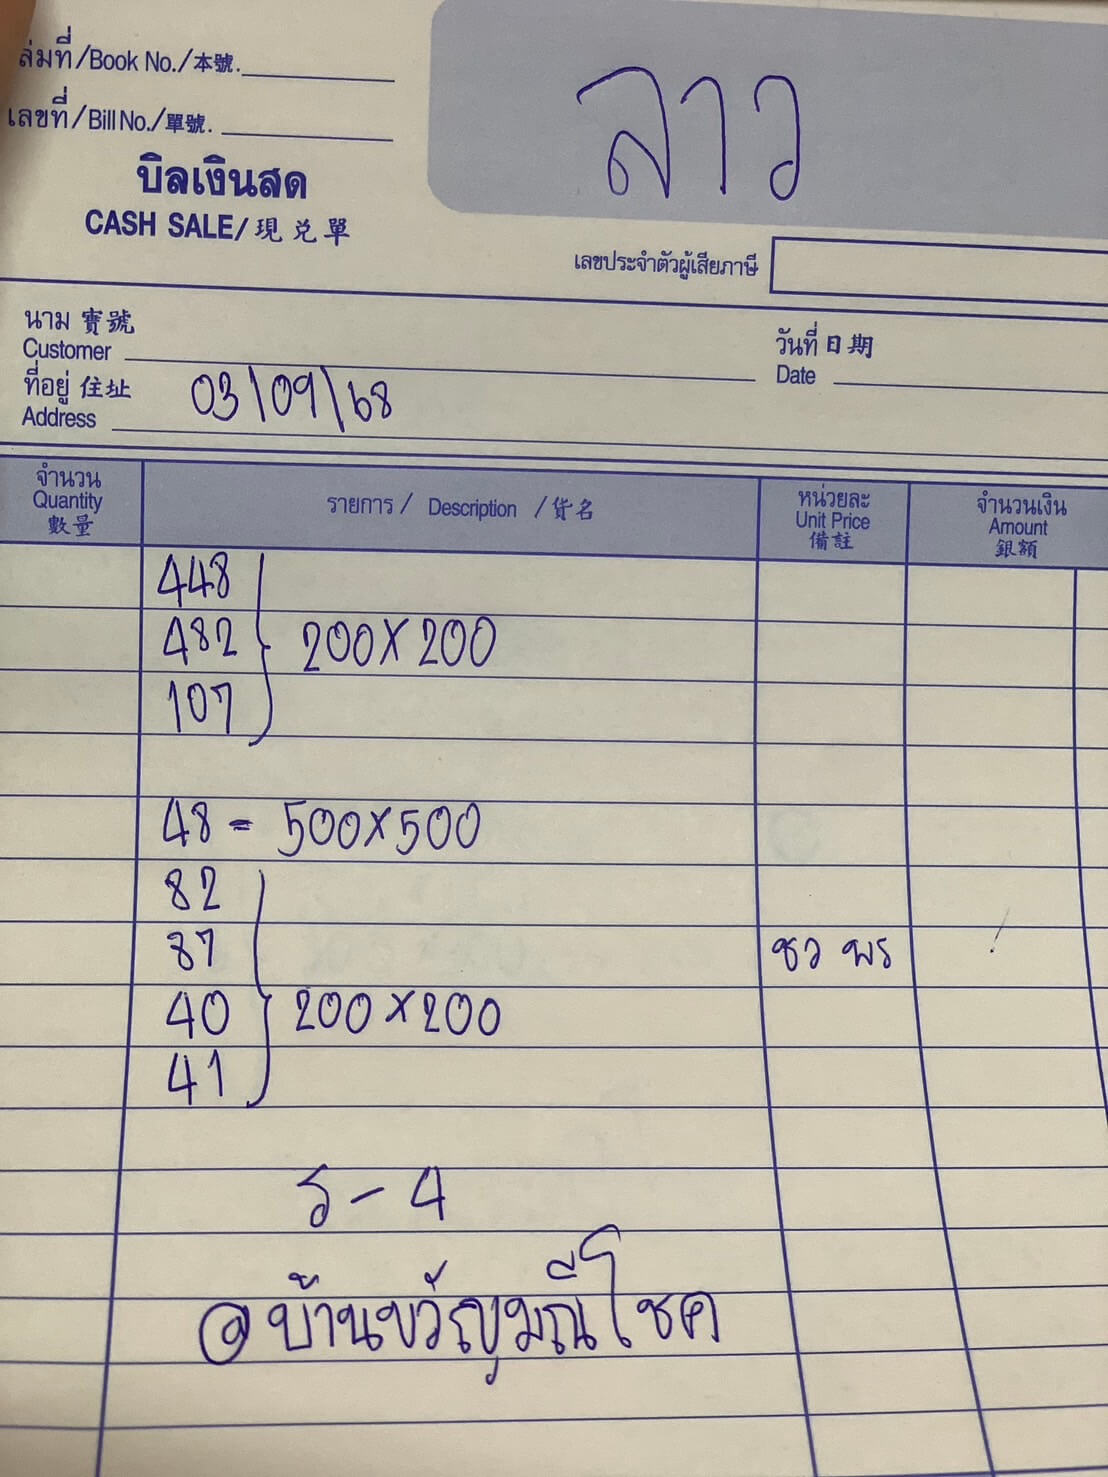 ล่มที่/Book No./本號.
เลขที่/Bill No./單號.
บิลเงินสด
CASH SALE/現兌單
ลาว
เลขประจำตัวผู้เสียภาษี
นาม 寶號
Customer
วันที่ 日期
Date
ที่อยู่ 住址
Address
03/09/68
จำนวน
Quantity
數量
รายการ / Description / 貨名
หน่วยละ
Unit Price
備註
จำนวนเงิน
Amount
銀額
448
482 } 200X200
107
48 - 500X500
82
87 ชว พร
40 } 200X200
41
ร - 4
@บ้านขวัญมณีโชค